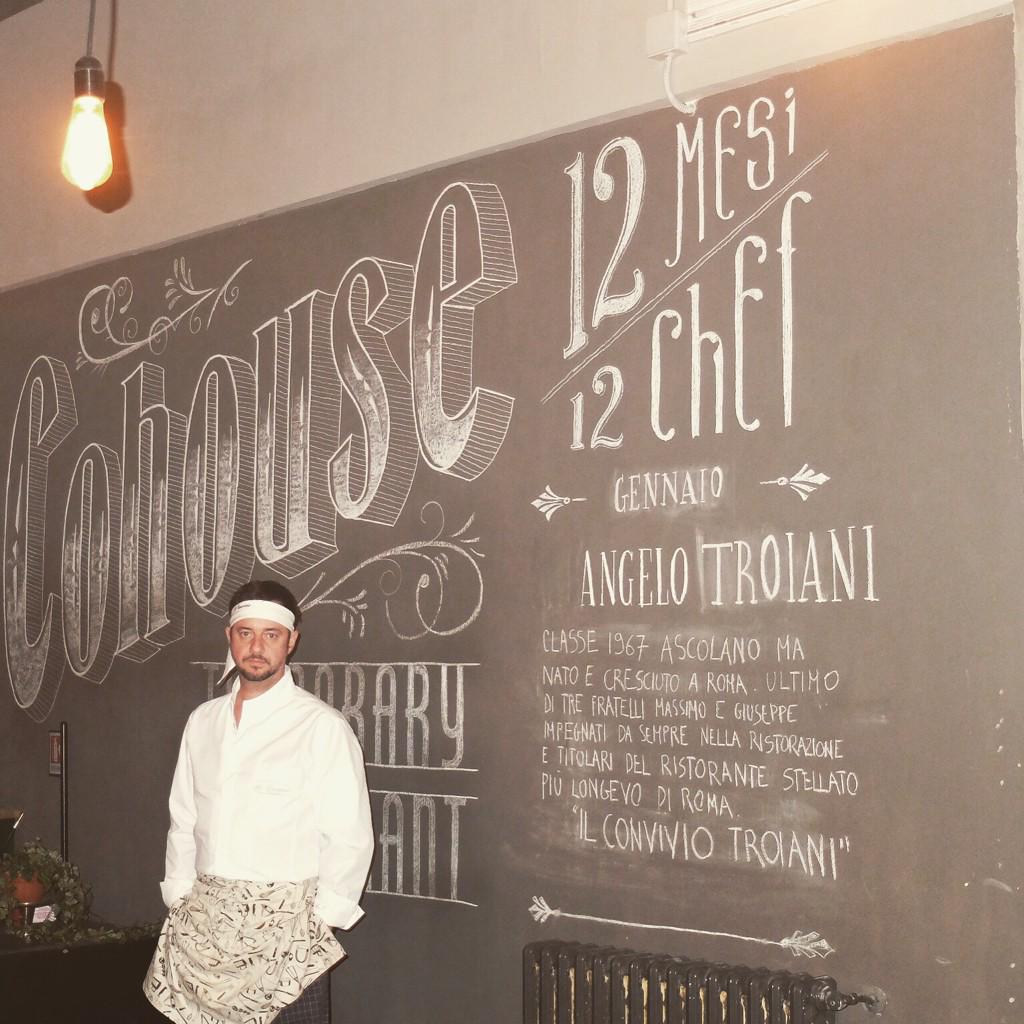 Cohouse
RARY
ANT
12 MESI
12 CHEF
GENNAIO
ANGELO TROIANI
CLASSE 1967 ASCOLANO MA
NATO E CRESCIUTO A ROMA. ULTIMO
DI TRE FRATELLI MASSIMO E GIUSEPPE
IMPEGNATI DA SEMPRE NELLA RISTORAZIONE
E TITOLARI DEL RISTORANTE STELLATO
PIÙ LONGEVO DI ROMA.
"IL CONVIVIO TROIANI"